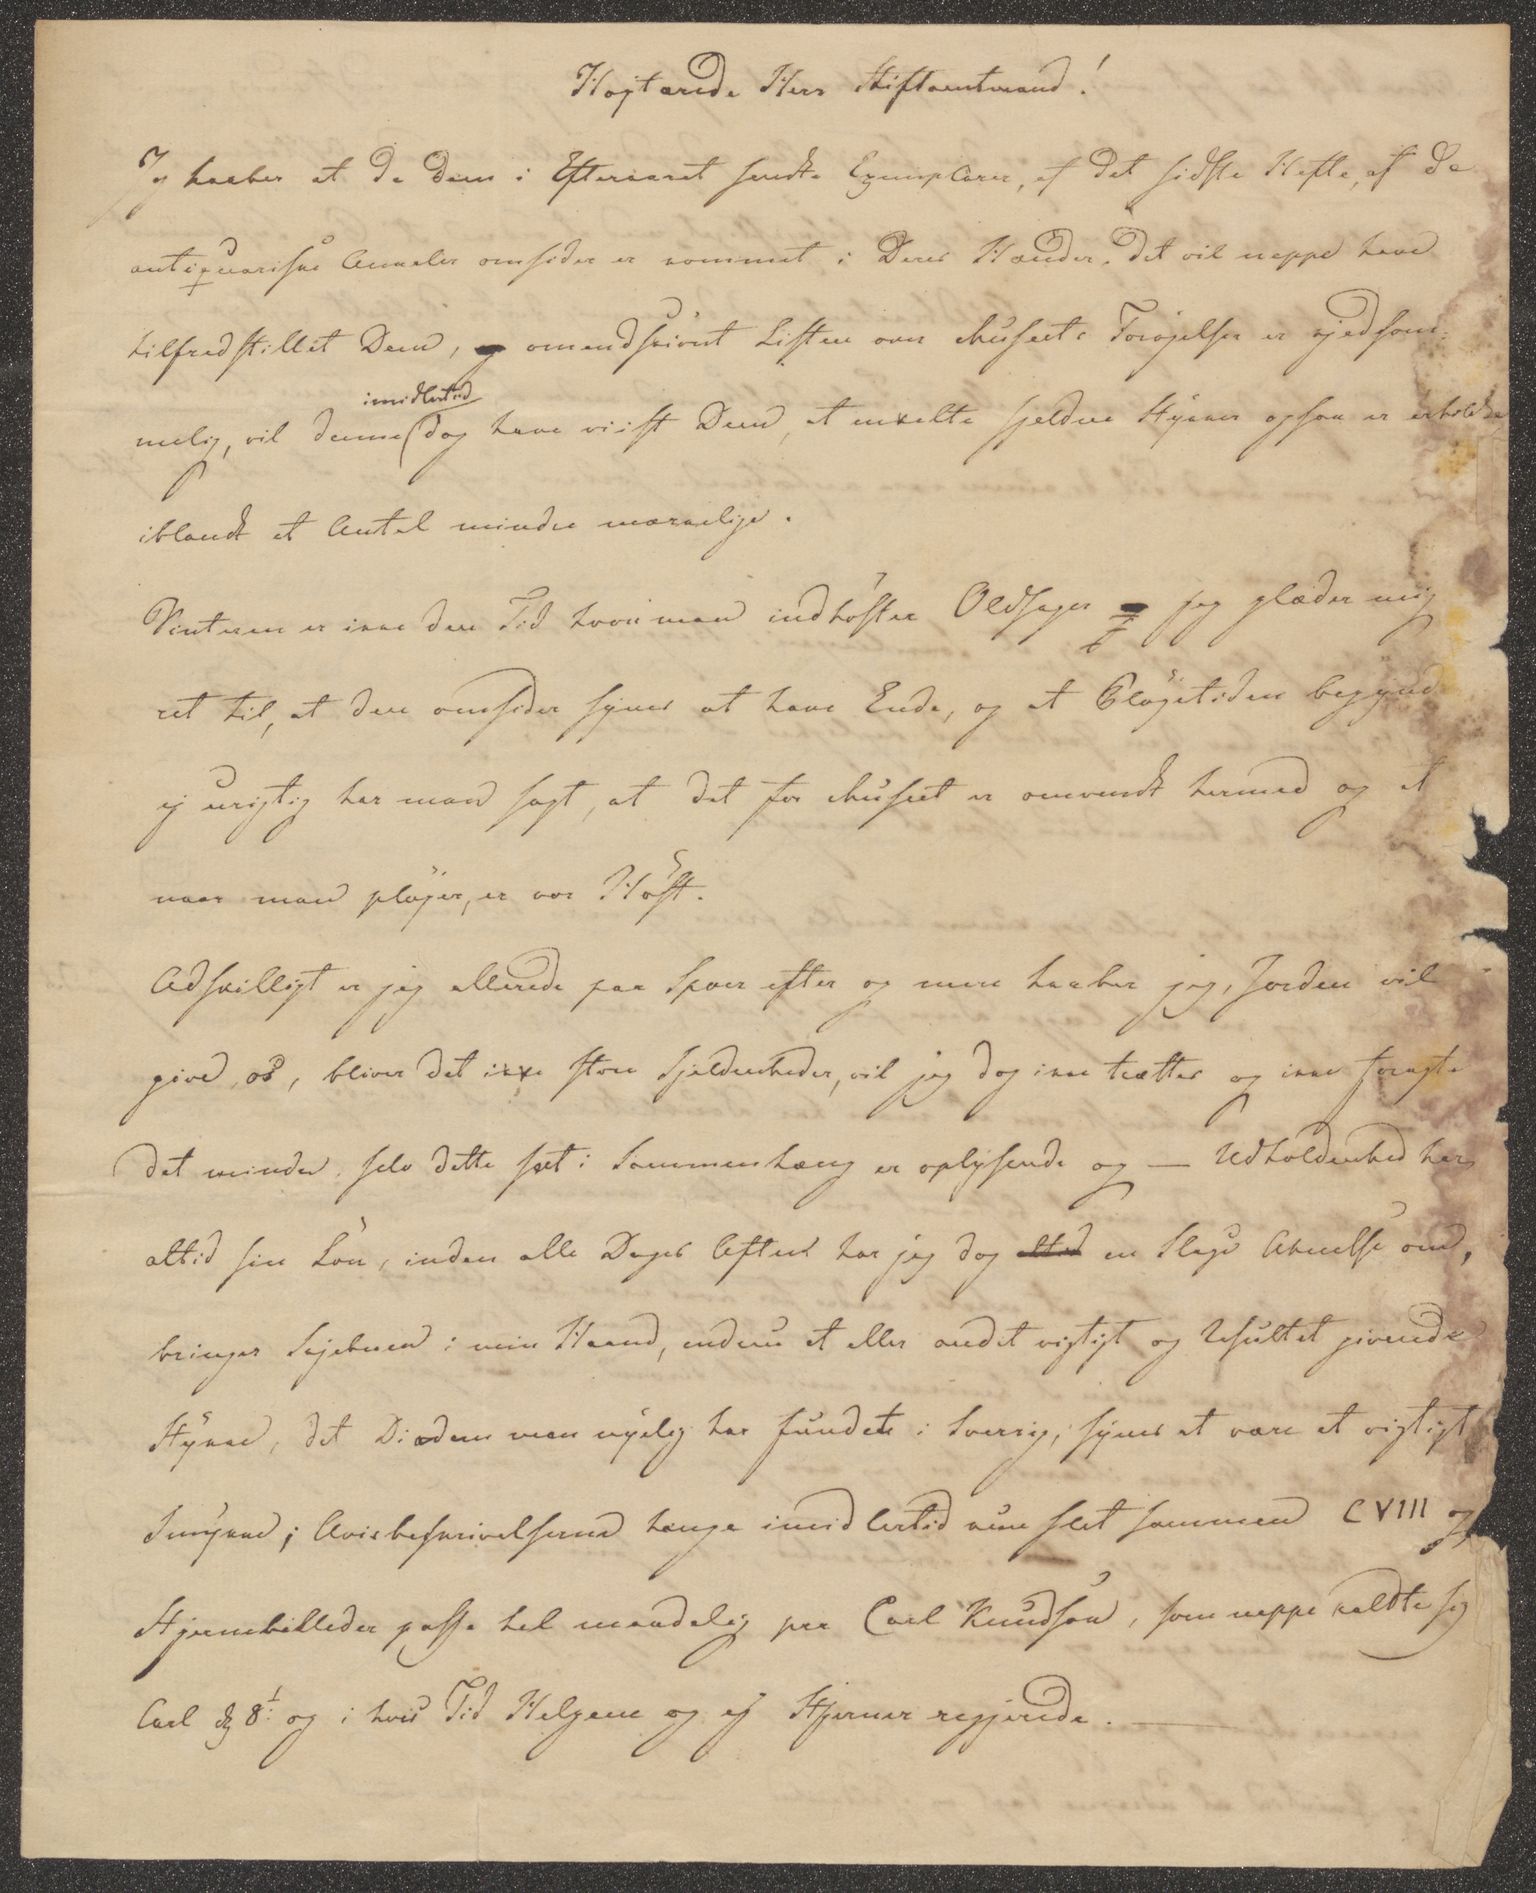 Højtærede Herr Stiftamtmand!
Jeg haaber at de Dem i Efteraaret sendte Exemplarer, af det sidste Hefte, af de
antiqvariske Annaler omsider er kommet i Deres Hænder. Det vil neppe have
tilfredstillet Dem, omendskiønt Listen over Museets Forøgelser er kjedsom-
melig, vil denne imidlertid dog have viist Dem, at enkelte sjeldne Stykker ogsaa er erholdte
iblandt et Antal mindre mærkelige.
Vinteren er ikke den Tid hvori man indhøster Oldsager jeg glæder mig
ret til, at den omsider synes at have Ende, og at Pløjetiden begynd
ej urigtig har man sagt, at det for Museet er omvendt hermed og at
naar man pløjer, er vor Høst.
Adskilligt er jeg allerede paa Spoer efter og mere haaber jeg, Jorden vil
give os, bliver det ikke store Sjeldenheder, vil jeg dog ikke trættes og ikke foragte
det mindre, selv dette sæt i Sammenhæng er oplysende og — Udholdenhed har
altid sin Løn, inden alle Dages Aften har jeg dog altid en Slags Anelse om,
bringer Skjebnen i min Haand, endnu et eller andet vigtigt og Resultat givende
Stykke, det Diadem man nylig har fundet i Sverrig, synes at være et vigtigt
Smykke; Avisbeskrivelserne hænge imidlertid kun slet sammen CVIII og
Stjernebilleder passe hel maadelig paa Carl Knudsøn, som neppe kaldte sig
Carl d 8t og i hvis Tid Helgene og ej Stjerner regjerede. —